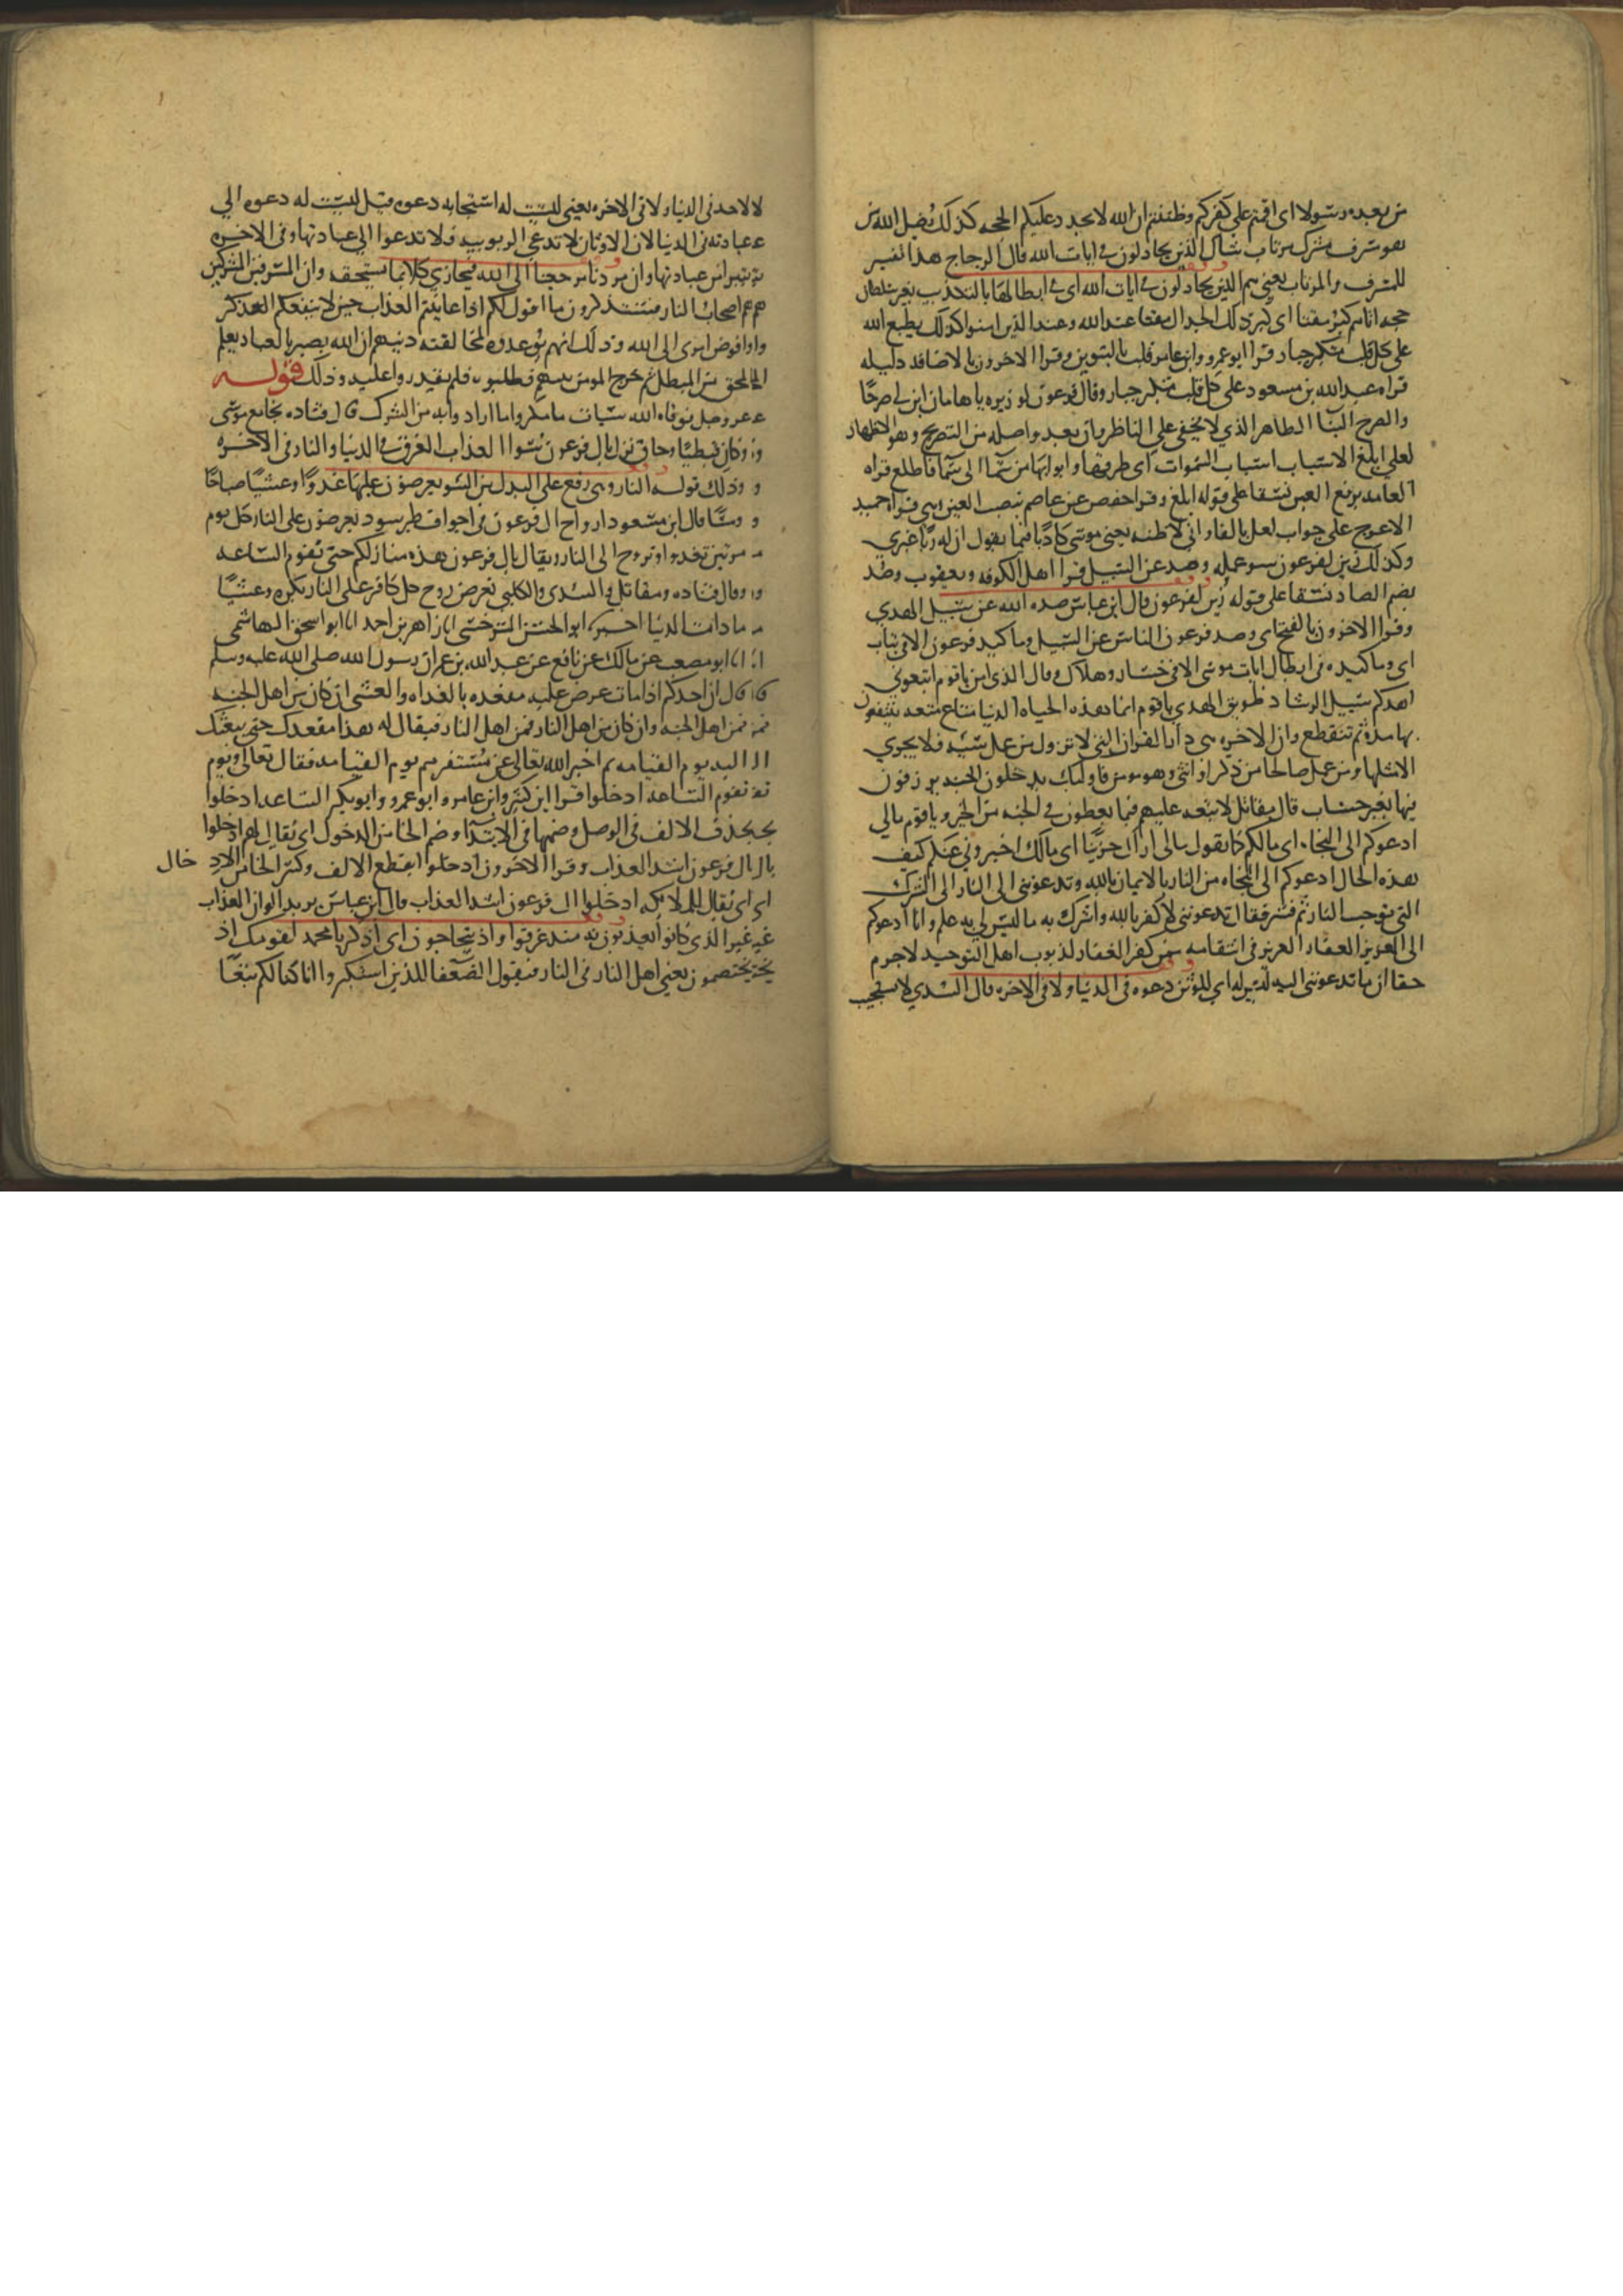 من بعده رسولا اى اقمتم على كفركم وظننتم ان الله لا يجدد عليكم الحجه كذلك يضل الله من
هو مسرف مشرك مرتاب شاك الذين يجادلون فى ايات الله قال الزجاج هذا تفسير
للمسرف والمرتاب يعنى هم الذين يجادلون فى ايات الله اى فى ابطالها بالتكذيب بغير سلطان
حجه اتاهم كبر مقتا اى كبر ذلك الجدال مقتا عند الله وعند الذين امنوا كذلك يطبع الله
على كل قلب متكبر جبار قرا ابو عمرو وابن عامر قلب بالتنوين وقرا الاخرون بالاضافه دليله
قراه عبد الله بن مسعود على كل قلب متكبر جبار وقال فرعون لوزيره يا هامان ابن لى صرحا
والصرح البنا الظاهر الذي لا يخفى على الناظر وان بعد واصله من التصريح وهو الاظهار
لعلى ابلغ الاسباب اسباب السموات اى طرقها وابوابها من سما الى سما فاطلع قراه
العامه برفع العين نسقا على قوله ابلغ وقرا حفص عن عاصم بنصب العين وهى قراه حميد
الاعرج على جواب لعل بالفا وانى لاظنه يعنى موسى كاذبا فيما يقول ان له ربا غيرى
وكذلك زين لفرعون سو عمله وصد عن السبيل قرا اهل الكوفه ويعقوب وصد
بضم الصاد نسقا على قوله زين لفرعون قال ابن عباس صده الله عن سبيل الهدى
وقرا الاخرون بالفتح اى وصد فرعون الناس عن السبيل وما كيد فرعون الا فى تباب
اى وما كيده فى ابطال ايات موسى الا فى خسار وهلاك وقال الذى امن ياقوم اتبعونى
اهدكم سبيل الرشاد طريق الهدى ياقوم انما هذه الحياه الدنيا متاع متعه تنتفعون
بها مده ثم تنقطع وان الاخره هى دار القرار التى لا تزول من عمل سييه فلا يجزى
الا مثلها ومن عمل صالحا من ذكر او انثى وهو مومن فاوليك يدخلون الجنه يرزقون
فيها بغير حساب قال مقاتل لا تبعه عليهم فيما يعطون فى الجنه من الخير وياقوم مالى
ادعوكم الى النجاه اى مالكم كما تقول مالى اراك حزينا اى مالك اخبرونى عنكم كيف
هذه الحال ادعوكم الى النجاه من النار بالايمان بالله وتدعوننى الى النار الى الشرك
التى يوجب النار ثم فسر فقال تدعوننى لاكفر بالله واشرك به ما ليس لى به علم وانا ادعوكم
الى العزيز الغفار العزيز فى انتقامه ممن كفر الغفار لذنوب اهل التوحيد لا جرم
حقا ان ما تدعوننى اليه ليس له اى للوثن دعوه فى الدنيا ولا فى الاخره قال السدى لا يستجيب
لاحد فى الدنيا ولا فى الاخره يعنى ليست له استجابه دعوه وقيل ليست له دعوه الى
عبادته فى الدنيا لان الاوثان لا تدعى الربوبيه فلا تدعوا الى عبادتها وفى الاخره
تتبرا من عبادتها وان مردنا مرجعنا الى الله فيجازى كلا بما يستحقه وان المسرفين المشركين
هم اصحاب النار فستذكرون ما اقول لكم اذا عاينتم العذاب حين لا ينفعكم الذكر
وافوض امرى الى الله وذلك انهم توعدوه لمخالفته دينهم ان الله بصير بالعباد يعلم
المحق من المبطل ثم خرج المومن من بينهم فطلبوه فلم يقدروا عليه وذلك قوله
عز وجل فوقاه الله سيات ما مكروا ما ارادوا به من الشرك قال قتاده نجا مع موسى
وكان قبطيا وحاق نزل بال فرعون سوا العذاب الغرق فى الدنيا والنار فى الاخره
وذلك قوله النار وهى رفع على البدل من السو يعرضون عليها غدوا وعشيا صباحا
ومسا قال ابن مسعود ارواح ال فرعون فى اجواف طير سود يعرضون على النار كل يوم
مرتين تغدوا وتروح الى النار ويقال يال فرعون هذه منازلكم حتى تقوم الساعه
وقال قتاده ومقاتل والسدى والكلبى تعرض روح كل كافر على النار بكره وعشيا
ما دامت الدنيا اخبرنا ابو الحسن السرخسى انا زاهر بن احمد انا ابو اسحق الهاشمى
انا ابو مصعب عن مالك عن نافع عن عبد الله بن عمر ان رسول الله صلى الله عليه وسلم
قال ان احدكم اذا مات عرض عليه مقعده بالغداه والعشى ان كان من اهل الجنه
فمن اهل الجنه وان كان من اهل النار فمن اهل النار فيقال له هذا مقعدك حتى يبعثك
اليه يوم القيامه ثم اخبر الله تعالى عن مستقرهم يوم القيامه فقال تعالى ويوم
تقوم الساعه ادخلوا قرا ابن كثير وابن عامر وابو عمرو وابو بكر الساعه ادخلوا
بحذف الالف فى الوصل وضمها فى الابتدا وضم الخا من الدخول اى يقال لهم ادخلوا
يال فرعون اشد العذاب وقرا الاخرون ادخلوا بقطع الالف وكسر الخا من الاد خال
اى يقال للملايكه ادخلوا ال فرعون اشد العذاب قال ابن عباس يريد الوان العذاب
غير الذى كانوا يعذبون به منذ غرقوا واذ يتحاجون اى اذكر يا محمد لقومك اذ
يختصمون يعنى اهل النار فى النار فيقول الضعفا للذين استكبروا انا كنا لكم تبعا